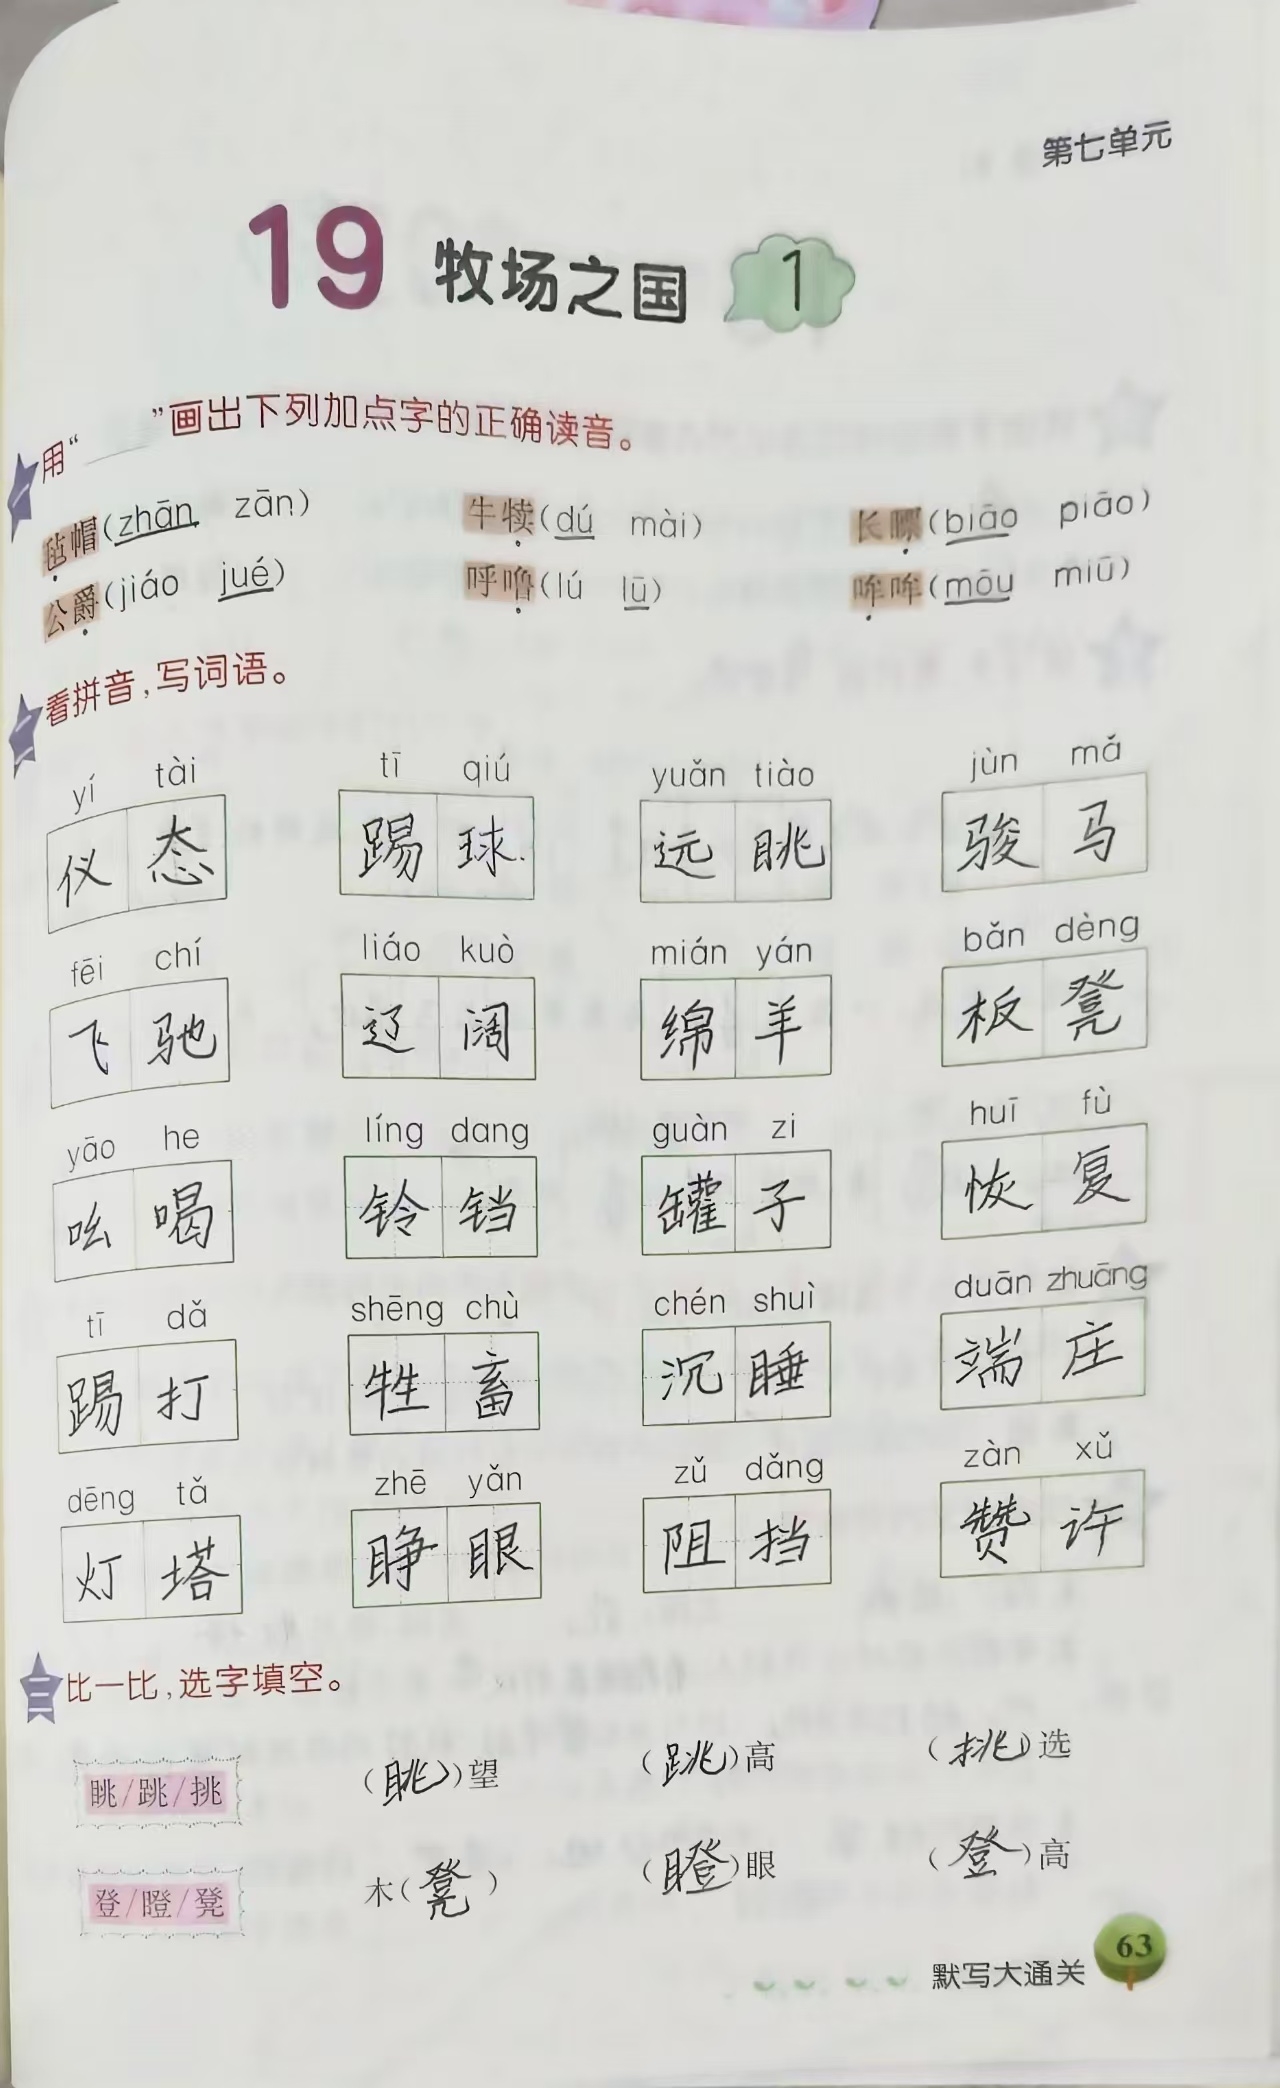 第七单元
19 牧场之国 1
一 用“____”画出下列加点字的正确读音。
毡帽(zhān zān) 牛犊(dú mài) 长膘(biāo piāo)
公爵(jiáo jué) 呼噜(lú lū) 哞哞(mōu miū)
二 看拼音,写词语。
yí tài tī qiú yuǎn tiào jùn mǎ
仪态 踢球 远眺 骏马
fēi chí liáo kuò mián yán bǎn dèng
飞驰 辽阔 绵羊 板凳
yāo he líng dang guàn zi huī fù
吆喝 铃铛 罐子 恢复
tī dǎ shēng chù chén shuì duān zhuāng
踢打 牲畜 沉睡 端庄
dēng tǎ zhē yǎn zǔ dǎng zàn xǔ
灯塔 睁眼 阻挡 赞许
三 比一比,选字填空。
眺/跳/挑 (眺)望 (跳)高 (挑)选
登/瞪/凳 木(凳) (瞪)眼 (登)高
默写大通关 63